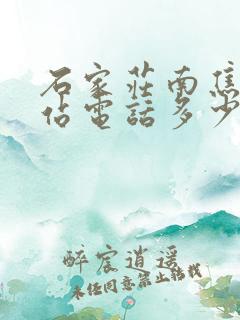 石家莊南焦
佔電話多少
醉宸逍遥
未经同意禁止转载